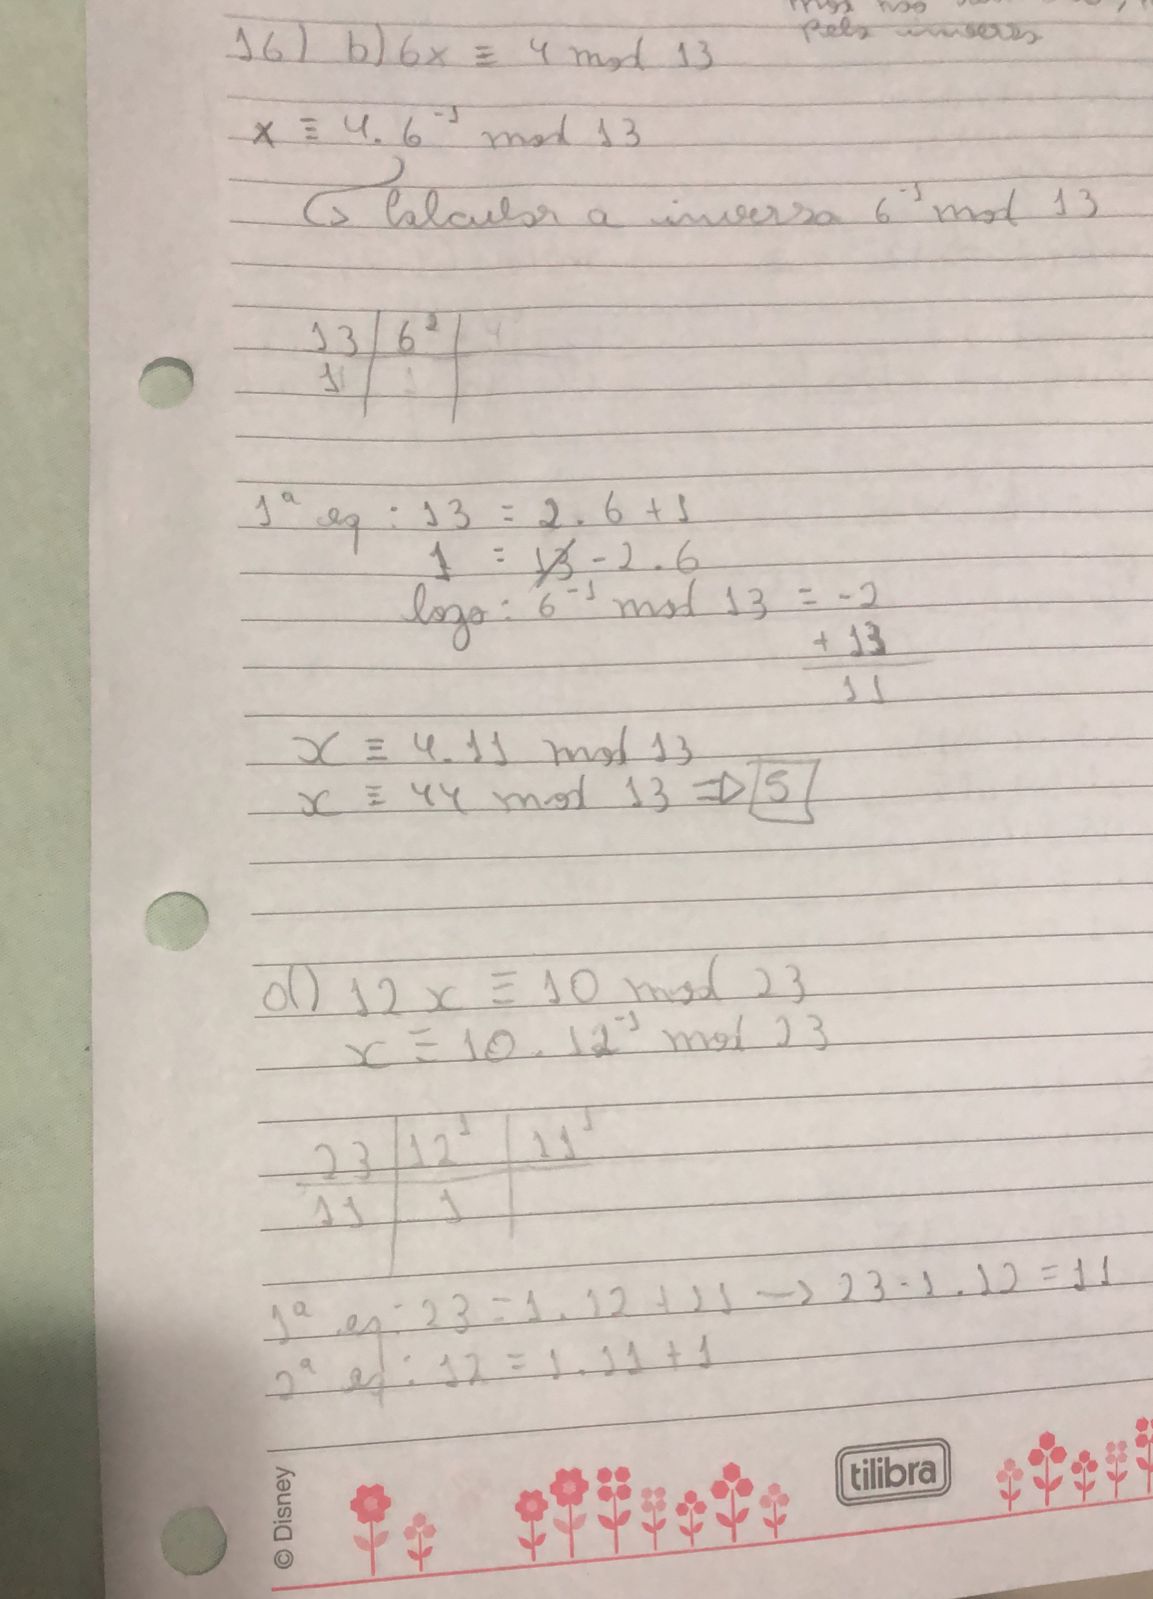 pela inversa
16) b) 6x ≡ 4 mod 13
x ≡ 4.6⁻¹ mod 13
↳ Calcular a inversa 6⁻¹ mod 13
13 | 6² |
1 |
1ª eq : 13 = 2.6+1
1 = 13-2.6
logo: 6⁻¹ mod 13 = -2
+ 13
11
x ≡ 4.11 mod 13
x ≡ 44 mod 13 ⇒ 5
d) 12x ≡ 10 mod 23
x ≡ 10.12⁻¹ mod 23
23 | 12¹ | 11¹
11 | 1 |
1ª eq: 23 = 1.12+11 → 23-1.12 = 11
2ª eq: 12 = 1.11+1
© Disney
tilibra